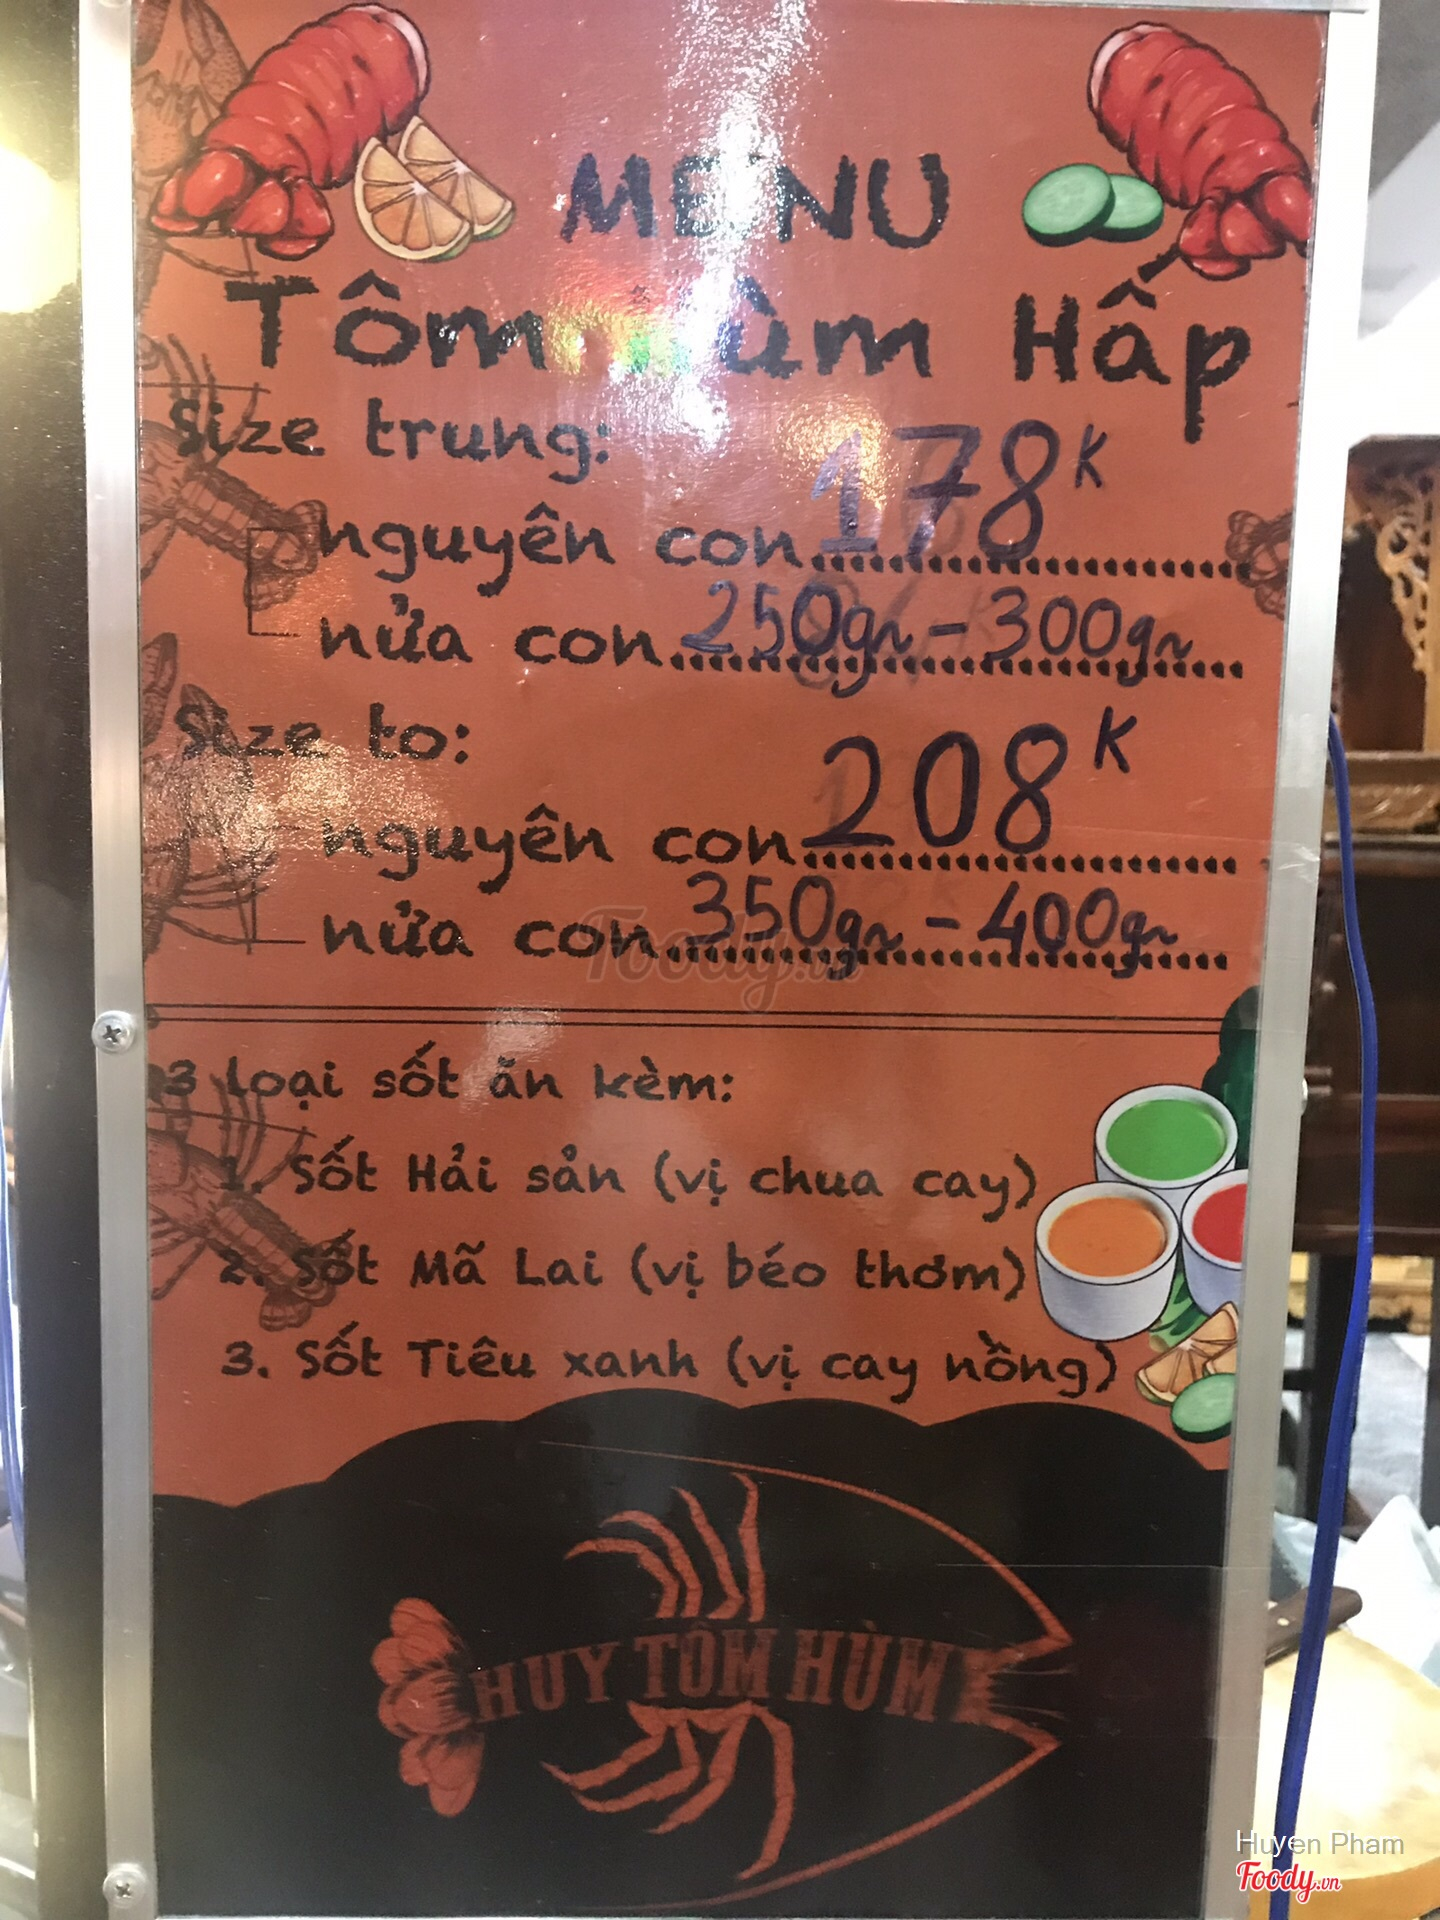 MENU
Tôm Hùm Hấp
Size trung:
nguyên con 178K
nửa con 250gr - 300gr
Size to:
nguyên con 208K
nửa con 350gr - 400gr
3 loại sốt ăn kèm:
1. Sốt Hải sản (vị chua cay)
2. Sốt Mã Lai (vị béo thơm)
3. Sốt Tiêu xanh (vị cay nồng)
HUY TÔM HÙM
Foody.vn
Huyen Pham
Foody.vn